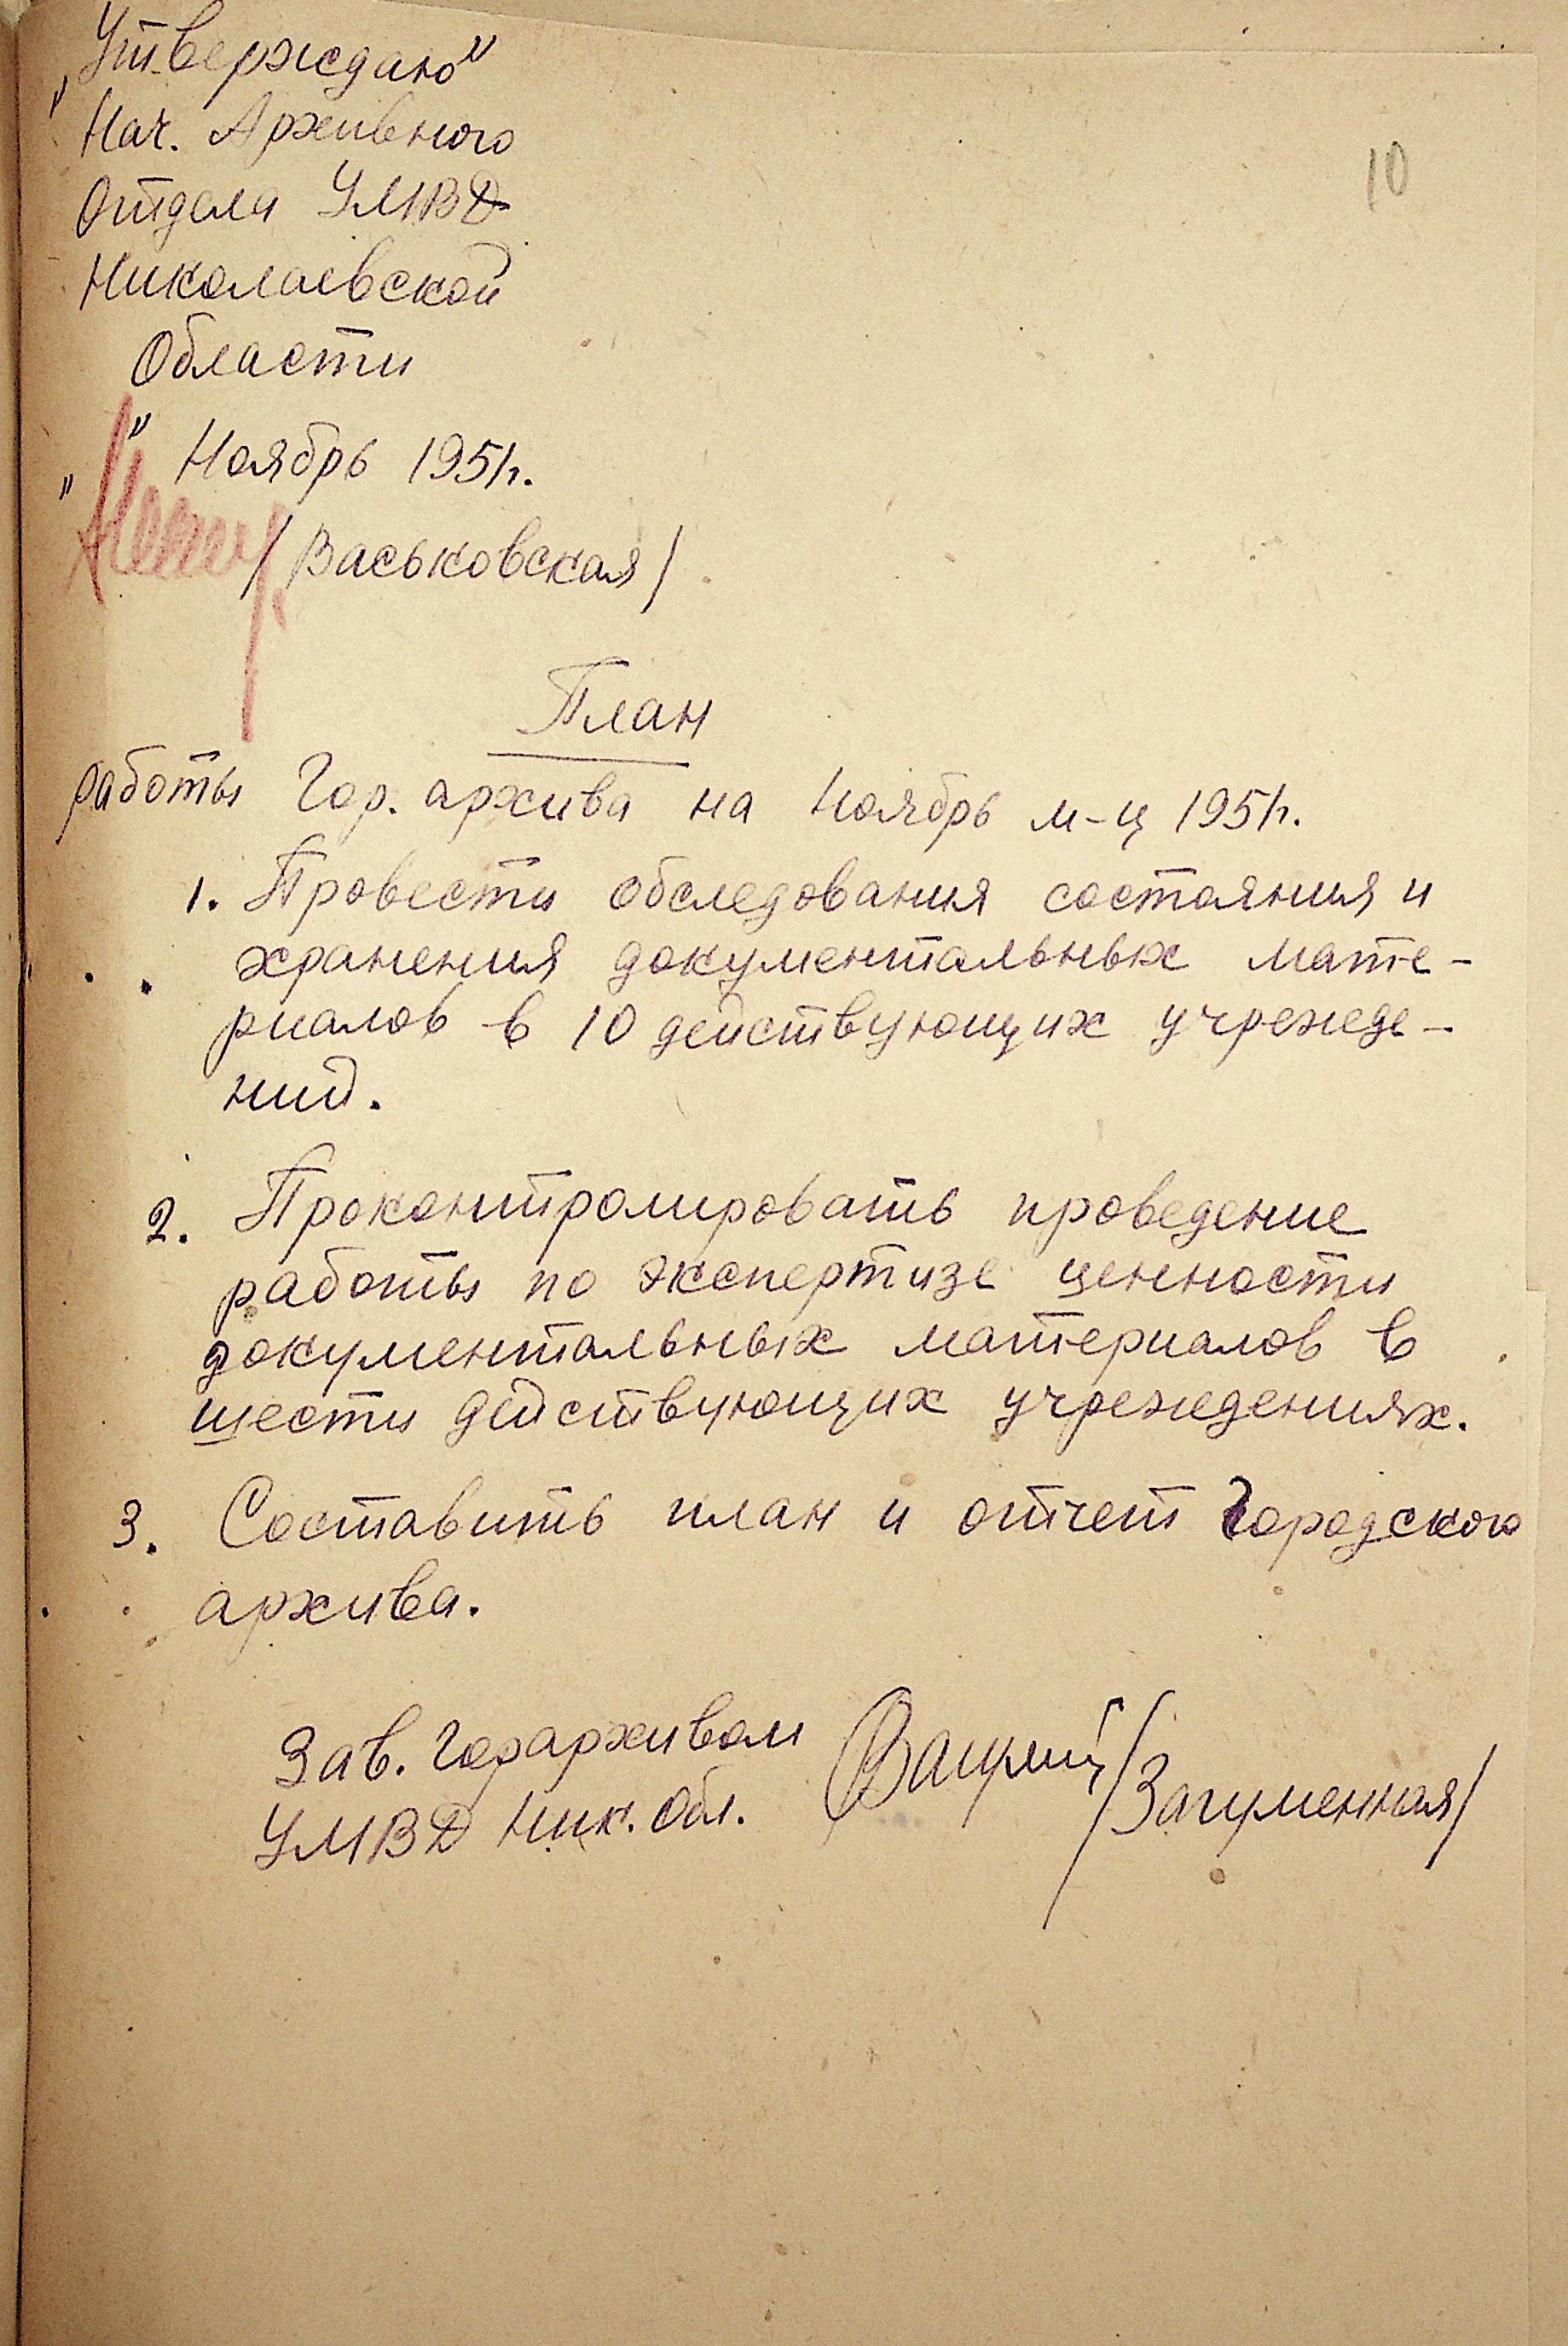 „Утверждаю"
Нач. Архивного
Отдела УМВД
Николаевской
Области
" " Ноябрь 1951г.
/Васьковская/
10
План
работы Гор. архива на Ноябрь м-ц 1951г.
1. Провести обследования состояния и
хранения документальных мате-
риалов в 10 действующих учрежде-
ний.
2. Проконтролировать проведение
работы по экспертизе ценности
документальных материалов в
шести действующих учреждениях.
3. Составить план и отчет Городского
архива.
Зав. Горархивом
УМВД Ник. Обл. /Загуменная/